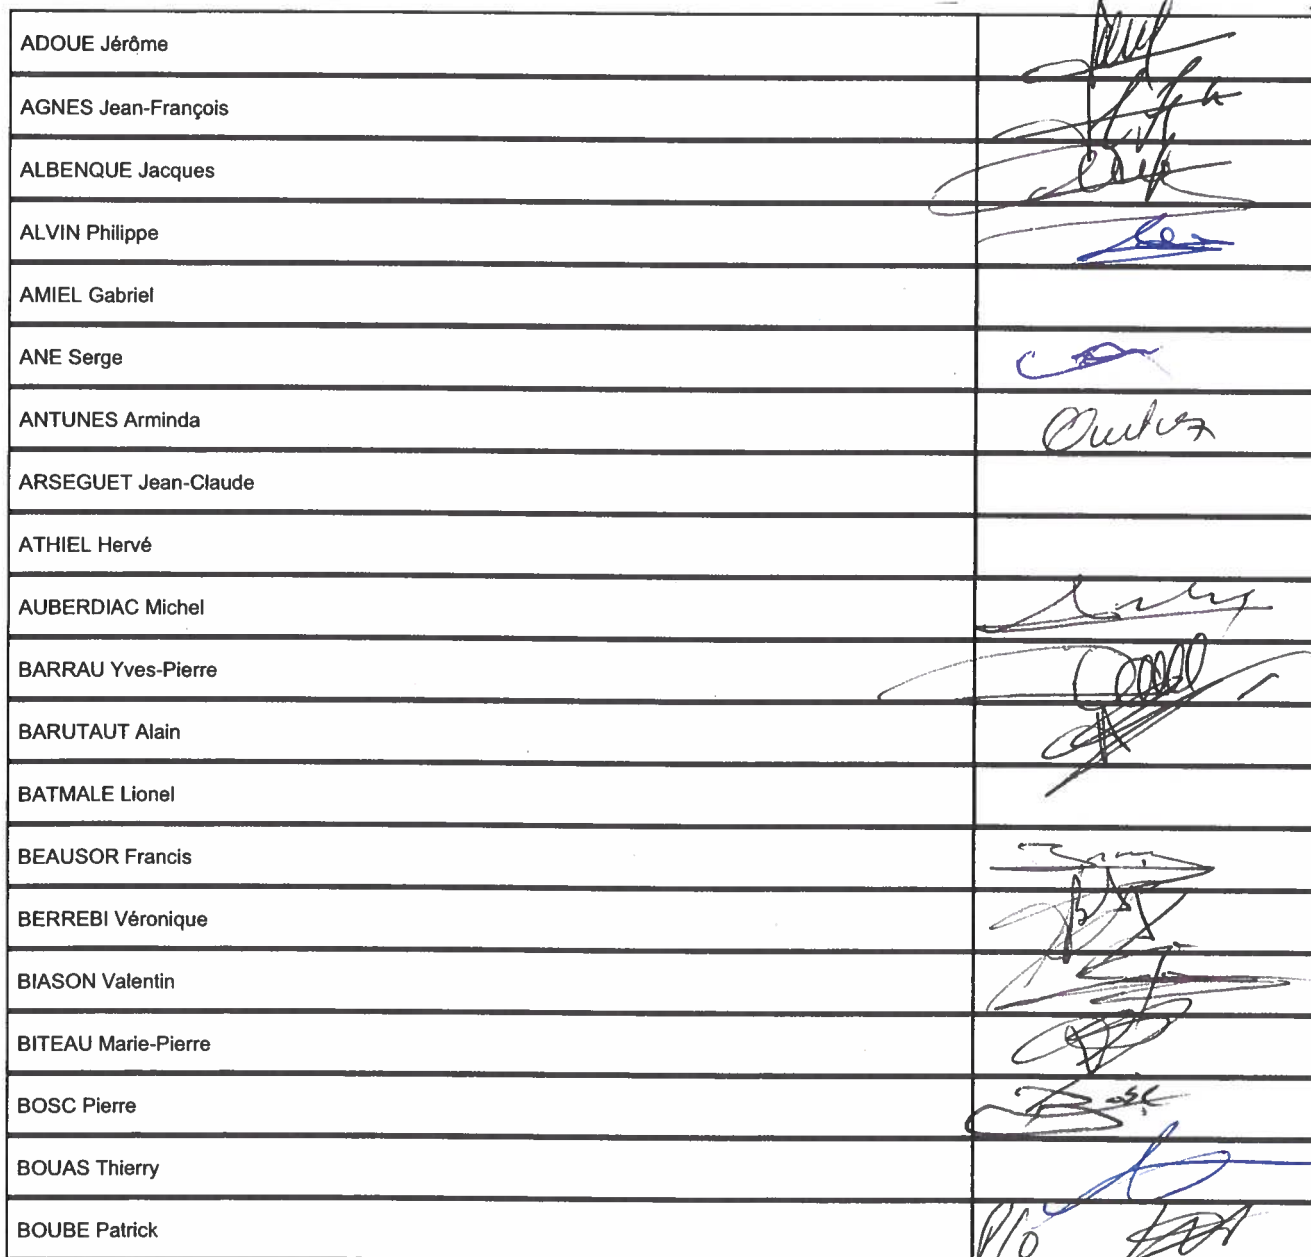 ADOUE Jérôme
AGNES Jean-François
ALBENQUE Jacques
ALVIN Philippe
AMIEL Gabriel
ANE Serge
ANTUNES Arminda
ARSEGUET Jean-Claude
ATHIEL Hervé
AUBERDIAC Michel
BARRAU Yves-Pierre
BARUTAUT Alain
BATMALE Lionel
BEAUSOR Francis
BERREBI Véronique
BIASON Valentin
BITEAU Marie-Pierre
BOSC Pierre Bosc
BOUAS Thierry
BOUBE Patrick P/o